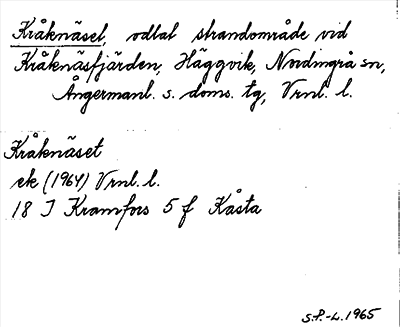 Kråknäset, odlat strandområde vid
Kråknäsfjärden, Häggvik, Nordingrå sn,
Ångermanl. s. doms. tg, Vrnl. l.
Kråknäset
ek (1964) Vrnl. l.
18 I Kramfors 5 f Kåsta
S.P.-L. 1965